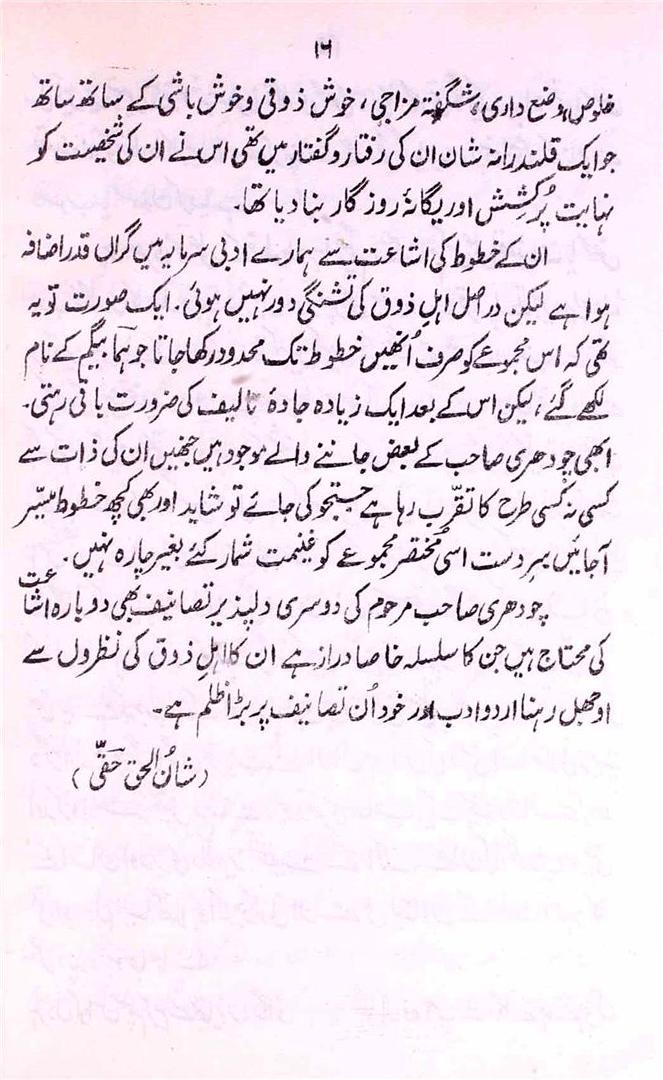 ۱۶
خلوص، وضع داری، شگفتہ مزاجی، خوش ذوقی و خوش باشی کے ساتھ ساتھ
جو ایک قلندرانہ شان ان کی رفتار و گفتار میں تھی اس نے ان کی شخصیت کو
نہایت پُرکشش اور یگانۂ روزگار بنا دیا تھا۔
ان کے خطوط کی اشاعت سے ہمارے ادبی سرمایہ میں گراں قدر اضافہ
ہوا ہے لیکن در اصل اہلِ ذوق کی تشنگی دور نہیں ہوئی۔ ایک صورت تو یہ
تھی کہ اس مجموعے کو صرف اُنھیں خطوط تک محدود رکھا جاتا جو ہما بیگم کے نام
لکھے گئے، لیکن اس کے بعد ایک زیادہ جادۂ تالیف کی ضرورت باقی رہتی۔
ابھی چودھری صاحب کے بعض جاننے والے موجود ہیں جنھیں ان کی ذات سے
کسی نہ کسی طرح کا تقرّب رہا ہے جستجو کی جائے تو شاید اور بھی کچھ خطوط میسّر
آجائیں سرِدست اسی مختصر مجموعے کو غنیمت شمار کئے بغیر چارہ نہیں۔
چودھری صاحب مرحوم کی دوسری دلپذیر تصانیف بھی دوبارہ اشاعت
کی محتاج ہیں جن کا سلسلہ خاصا دراز ہے ان کا اہلِ ذوق کی نظروں سے
اوجھل رہنا اردو ادب اور خود اُن تصانیف پر بڑا ظلم ہے۔
(شانُ الحق حقّی)